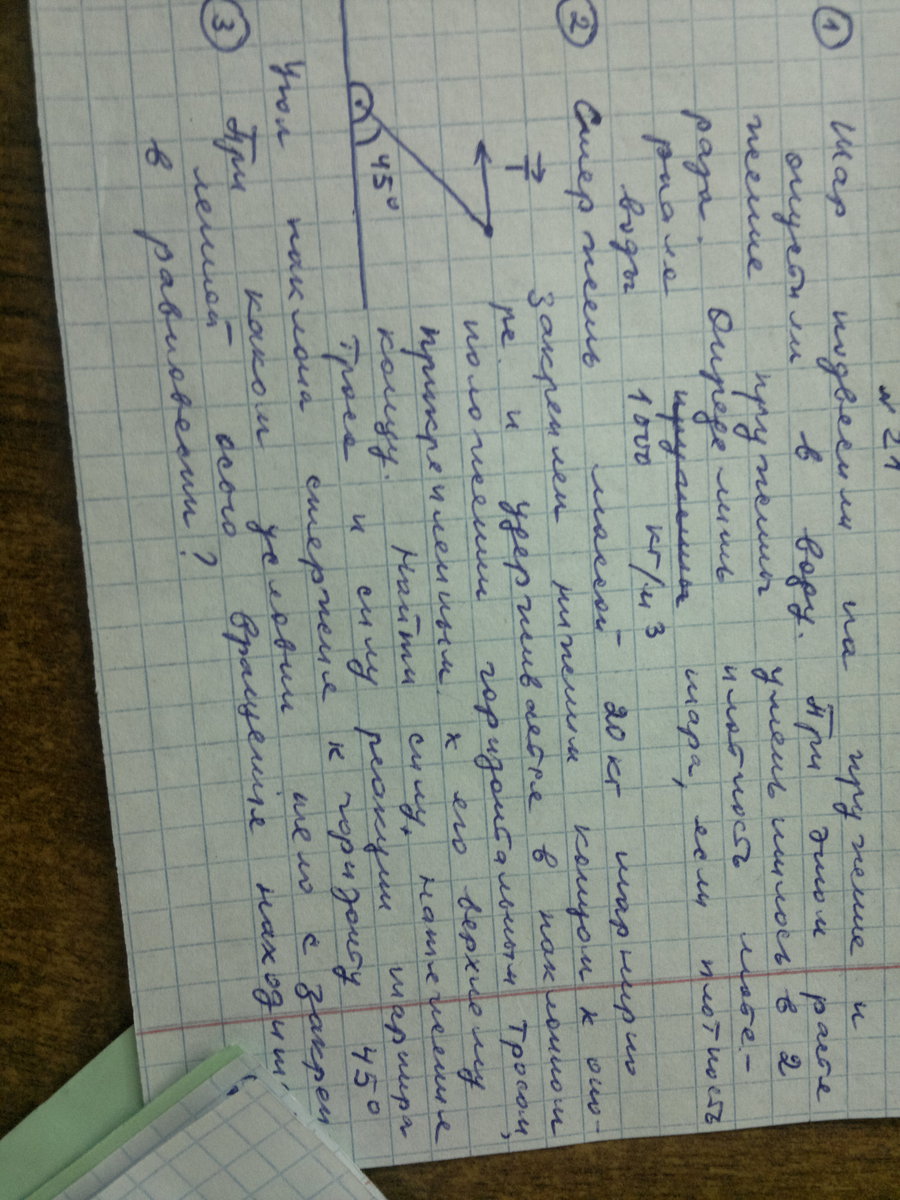 № 21
① Шар подвесили на пружине и
опустили в воду. При этом растя
жение пружины уменьшилось в 2
раза. Определить плотность мате-
риала пружины шара, если плотность
воды 1000 кг/м³
② Стержень массой 20 кг шарнирно
закреплен нижним концом к опо-
ре. и удерживается в наклонном
положении горизонтальным тросом,
прикрепленным к его верхнему
концу. Найти силу, натяжения
троса и силу реакции шарнира
T
45°
Угол наклона стержня к горизонту 45°
③ При каком условии тело с закреп
ленной осью вращения находит.
в равновесии?